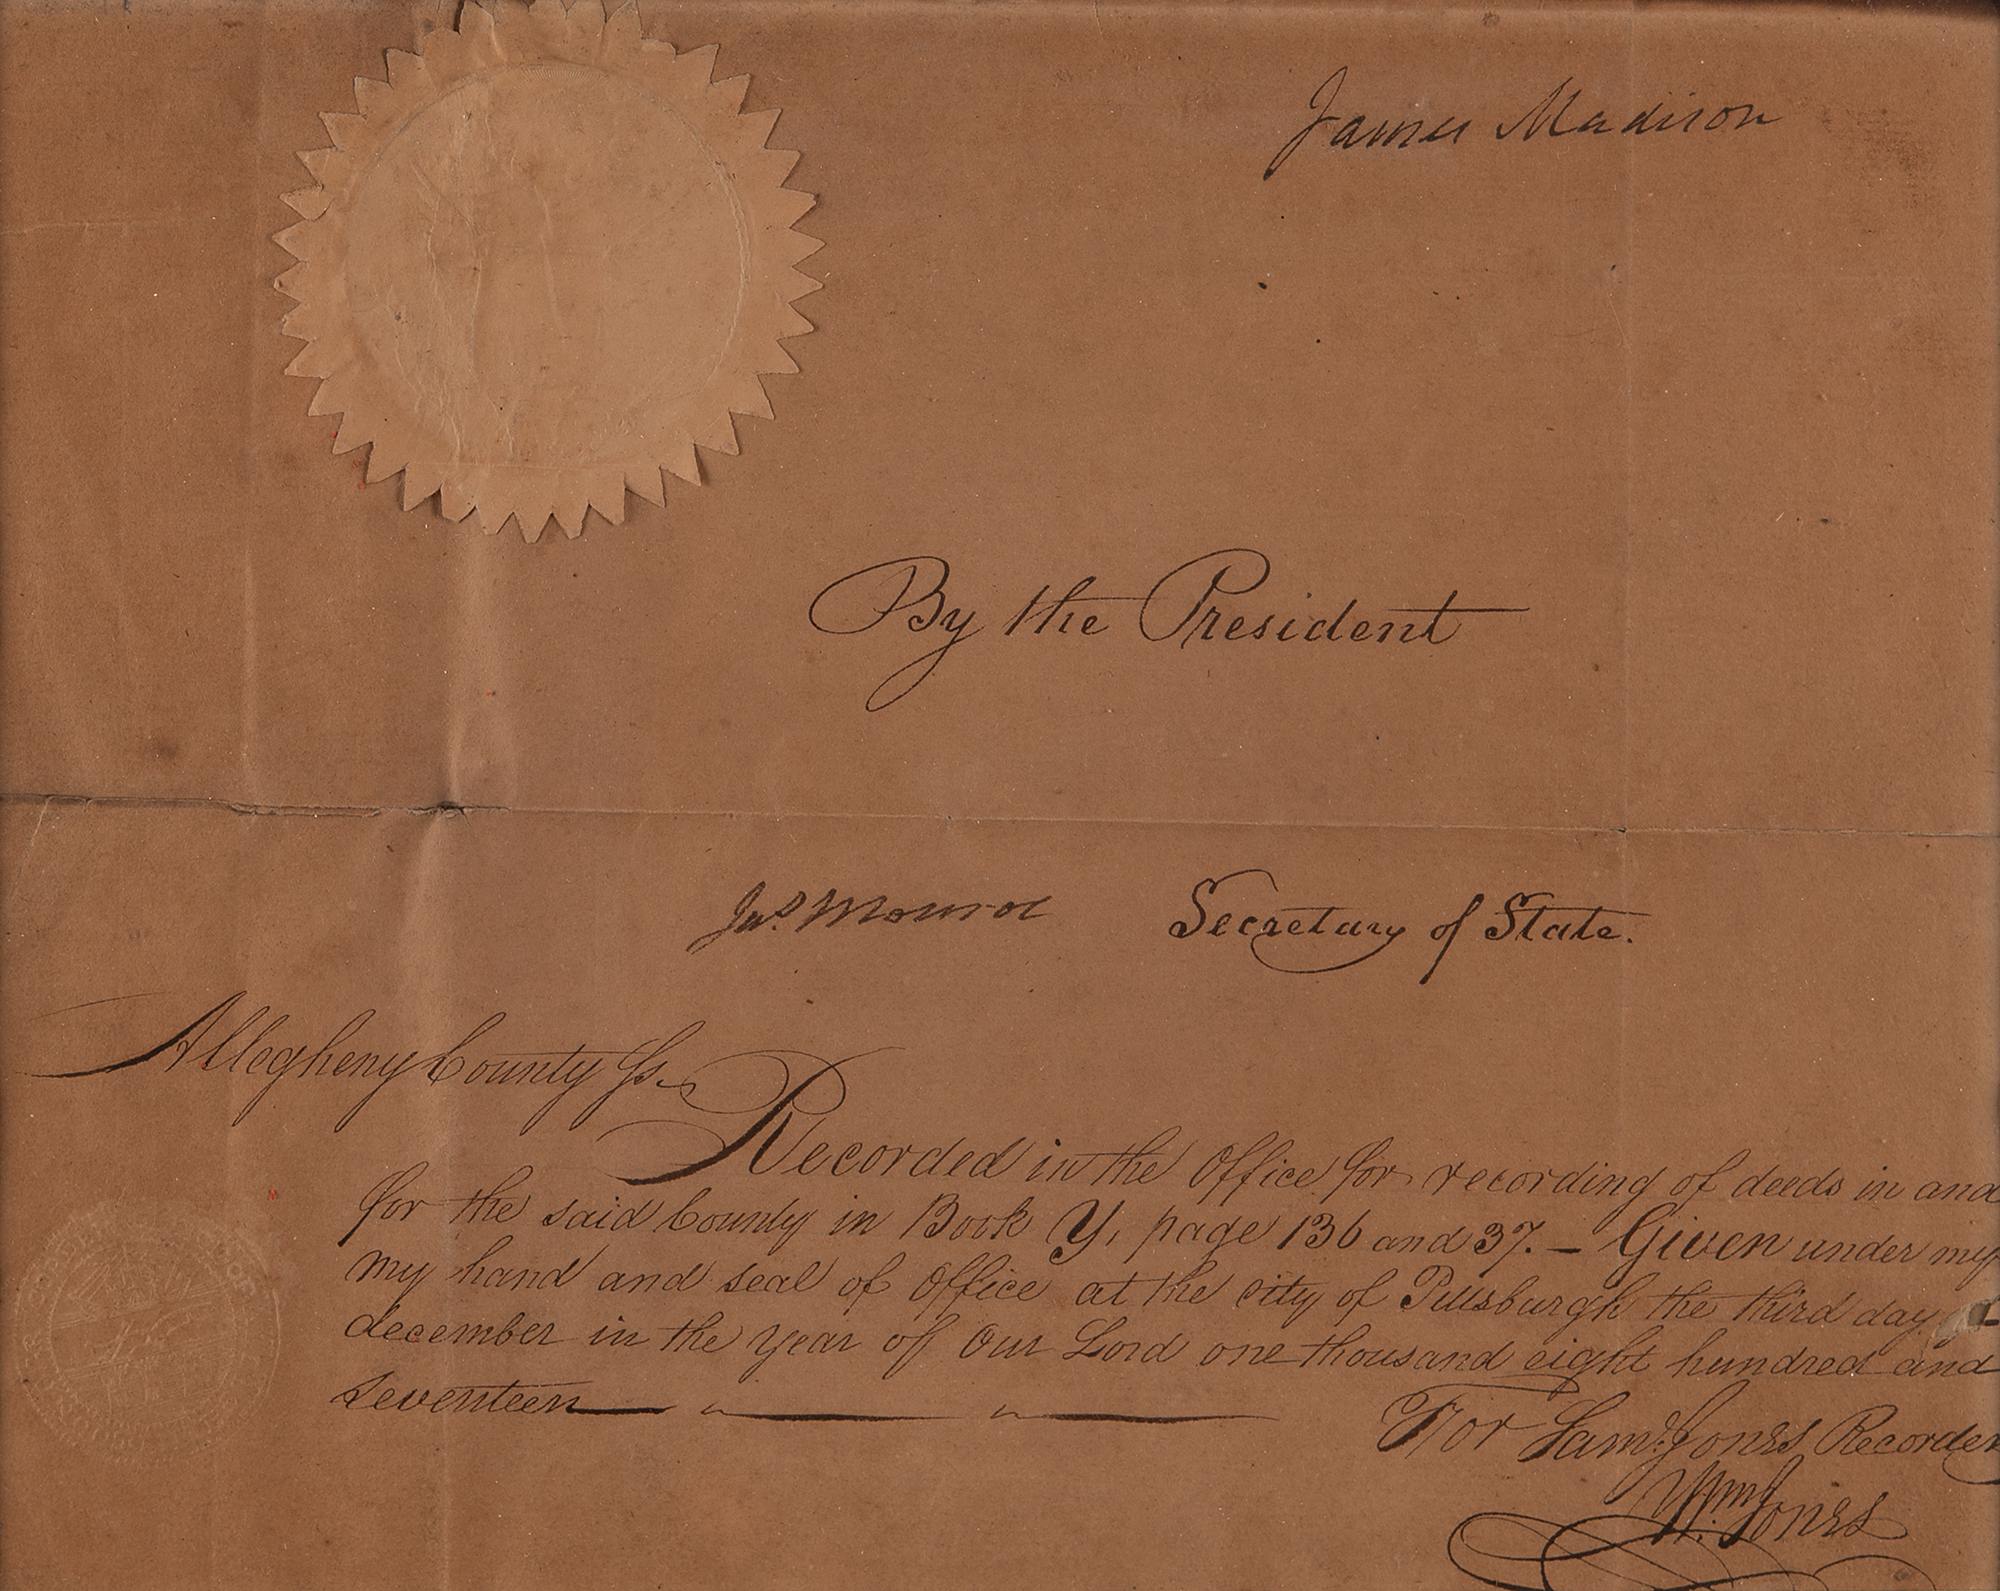 James Madison
By the President
Jas. Monroe Secretary of State.
Allegheny County Ss.
Recorded in the Office for recording of deeds in and
for the said County in Book Y, page 136 and 37. — Given under my
my hand and seal of Office at the city of Pittsburgh the third day
december in the year of Our Lord one thousand eight hundred and
seventeen
For Saml. Jones Recorder
Wm. Jones